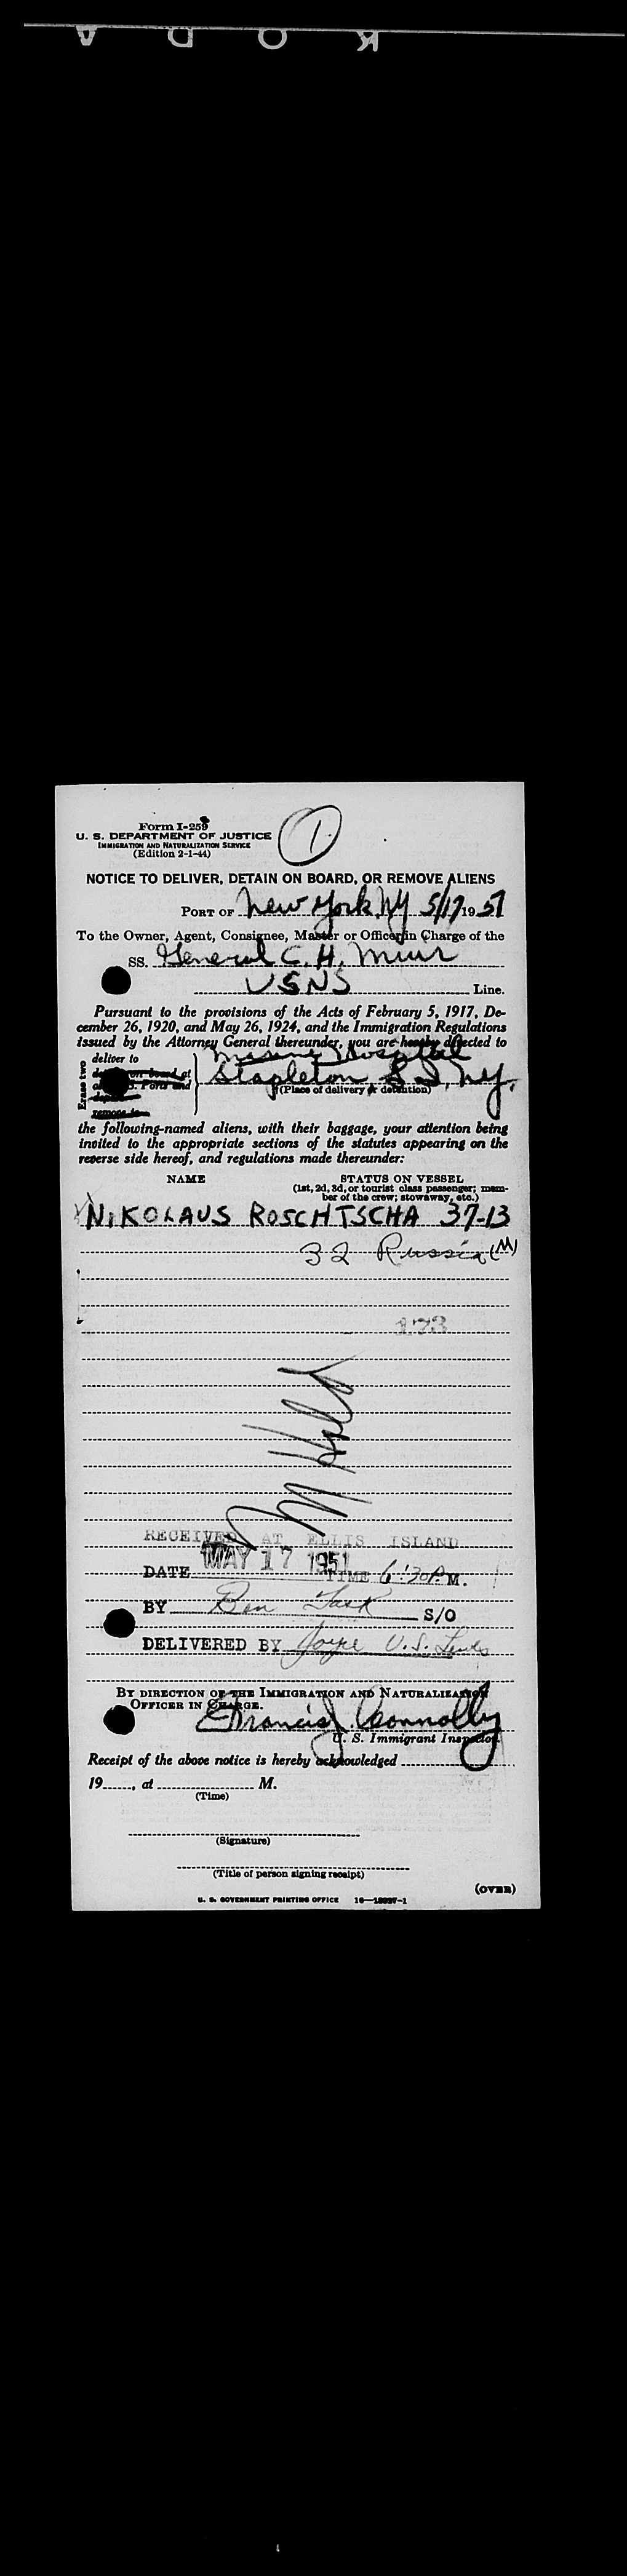 K O D A
Form I-259
U. S. DEPARTMENT OF JUSTICE
IMMIGRATION AND NATURALIZATION SERVICE
(Edition 2-1-44)
1
NOTICE TO DELIVER, DETAIN ON BOARD, OR REMOVE ALIENS
PORT OF New York NY 5/17 1951
To the Owner, Agent, Consignee, Master or Officer in Charge of the
SS. General C. H. Muir
USNS Line.
Pursuant to the provisions of the Acts of February 5, 1917, De-
cember 26, 1920, and May 26, 1924, and the Immigration Regulations
issued by the Attorney General thereunder, you are hereby directed to
Erase two
deliver to
on board at
Ports and
remove to
Marine Hospital
Stapleton S I, NY.
(Place of delivery or detention)
the following-named aliens, with their baggage, your attention being
invited to the appropriate sections of the statutes appearing on the
reverse side hereof, and regulations made thereunder:
NAME STATUS ON VESSEL
(1st, 2d, 3d, or tourist class passenger; mem-
ber of the crew; stowaway, etc.)
NIKOLAUS ROSCHTSCHA 37-13
32 Russia (M)
173
RECEIVED AT ELLIS ISLAND
DATE MAY 17 1951 TIME 6:30 P. M.
BY Ben Task S/O
DELIVERED BY Joyce U.S. Lines
BY DIRECTION OF THE IMMIGRATION AND NATURALIZATION
OFFICER IN CHARGE.
Francis J Connolly
U. S. Immigrant Inspector.
Receipt of the above notice is hereby acknowledged
19......, at M.
(Time)
(Signature)
(Title of person signing receipt)
(OVER)
U. S. GOVERNMENT PRINTING OFFICE 16—18927-1